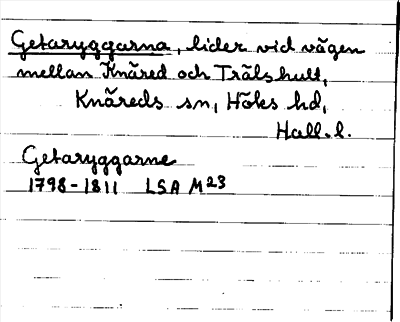 Getaryggarna, lider vid vägen
mellan Knäred och Trälshult,
Knäreds sn, Höks hd,
Hall. l.
Getaryggarne
1798-1811 LSA M23